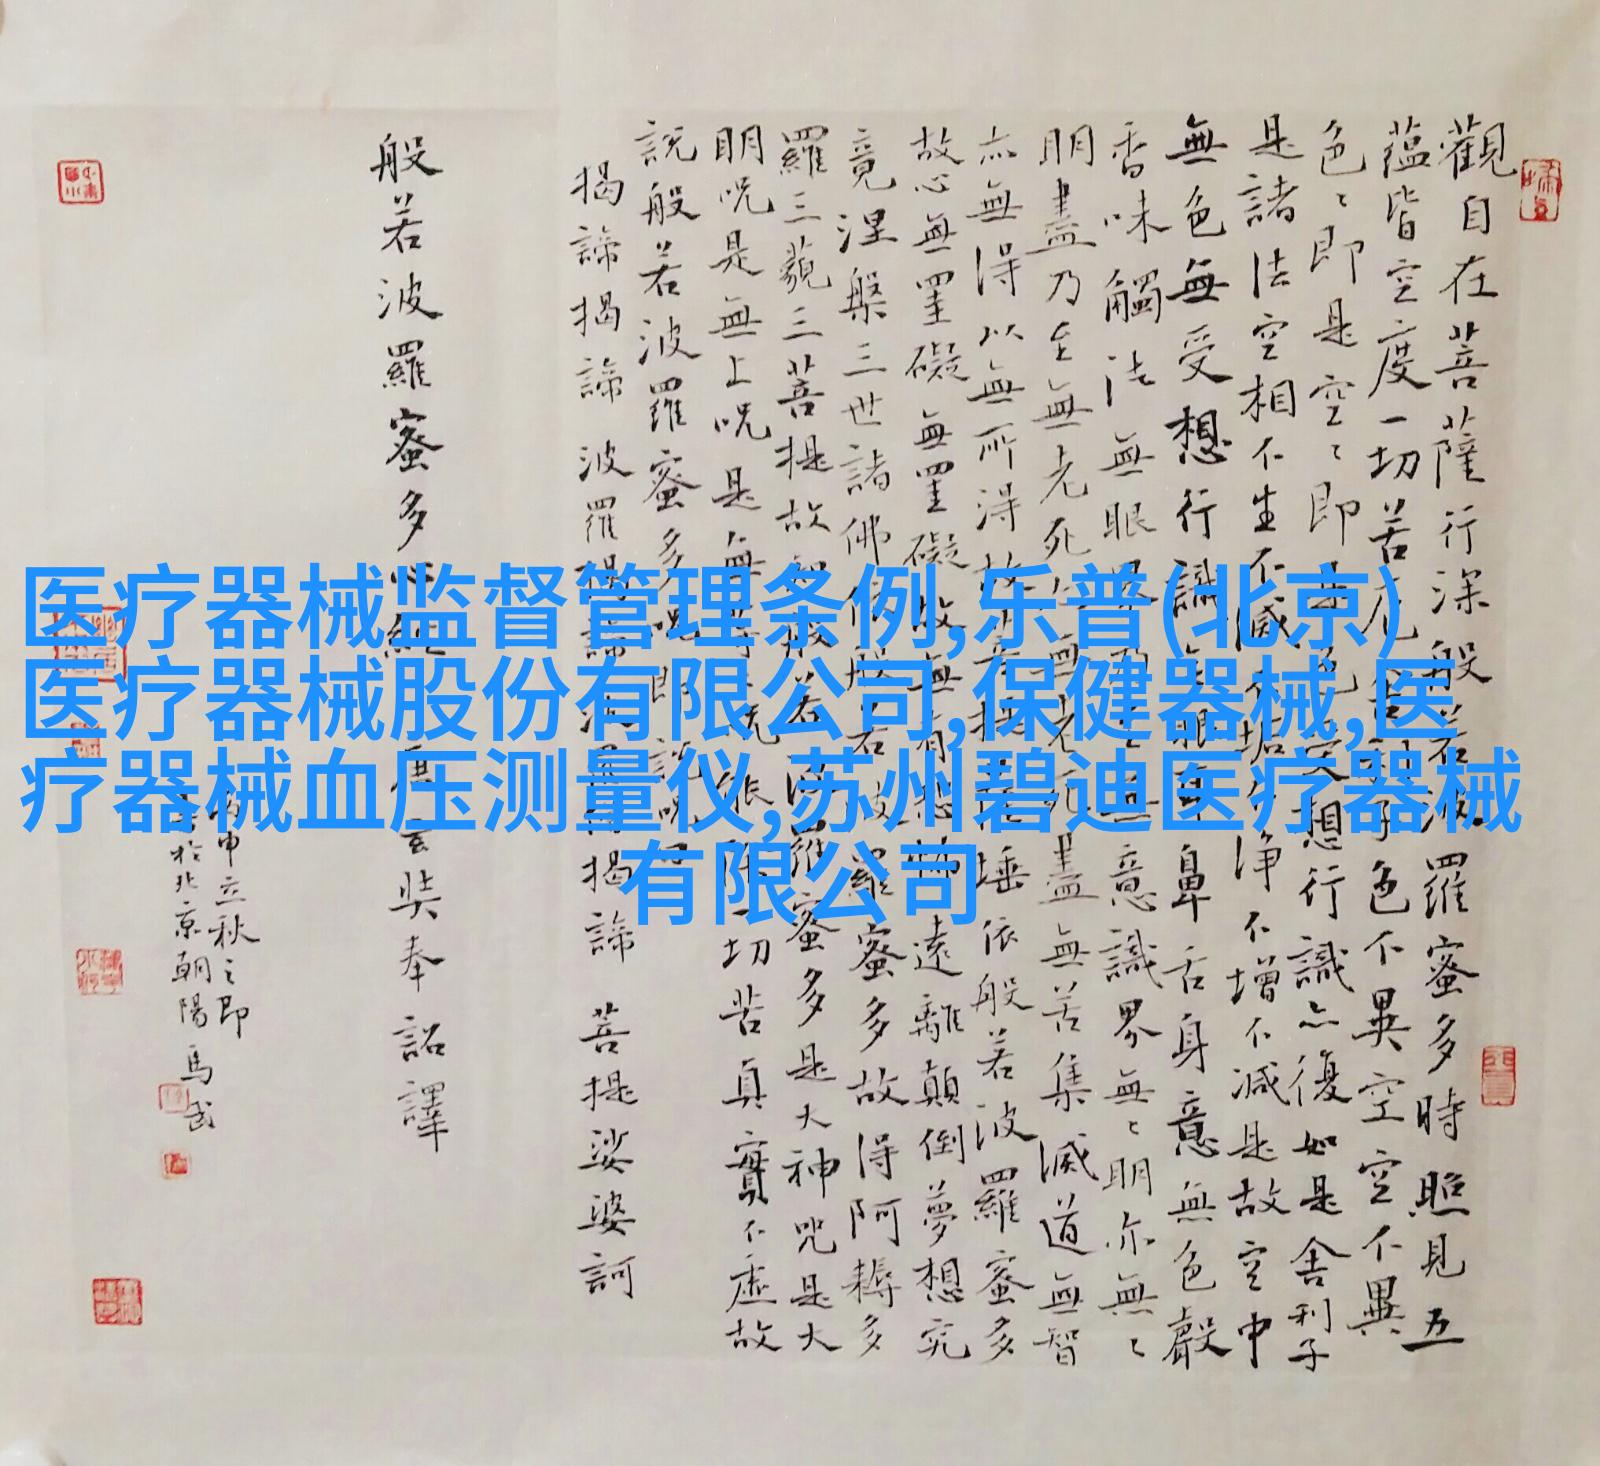 医疗器械监督管理条例,乐普(北京)
医疗器械股份有限公司,保健器械,医
疗器械血压测量仪,苏州碧迪医疗器械
有限公司
觀自在菩薩行深般若波羅蜜多時照見五
蘊皆空度一切苦厄舍利子色不異空空不異
色〻即是空〻即是色受想行識亦復如是舍利子
是諸法空相不生不滅不垢不淨不增不減是故空中
無色無受想行識無眼耳鼻舌身意無色聲
香味觸法無眼界乃至無意識界無〻明亦無〻
明盡乃至無老死亦無老死盡無苦集滅道無智
亦無得以無所得故菩提薩埵依般若波羅蜜多
故心無罣礙無罣礙故無有恐怖遠離顛倒夢想究
竟涅槃三世諸佛依般若波羅蜜多故得阿耨多
羅三藐三菩提故知般若波羅蜜多是大神咒是大
明呪是無上呪是無等等呪能除一切苦真實不虛故
說般若波羅蜜多呪即說呪曰
揭諦揭諦 波羅揭諦 波羅僧揭諦 菩提娑婆訶
般若波羅蜜多心經 唐玄奘奉詔譯
丙申立秋之即
書於北京朝陽 馬武